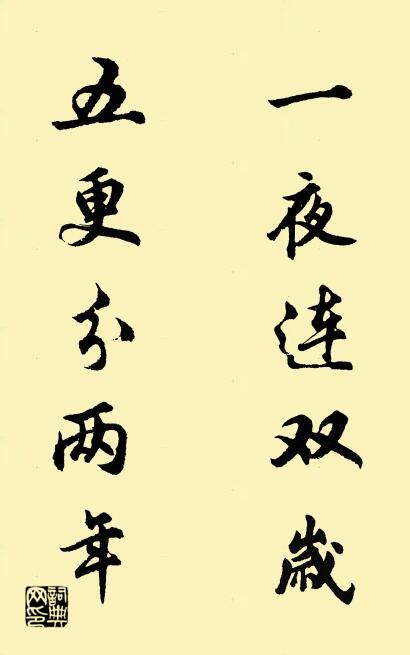 一夜连双歲
五更分两年
詞典网印